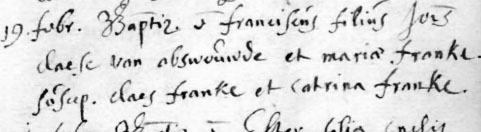 19. febr. Baptiz. ē franciscus filius Joēs
claese van abswouwde et mariæ franke.
suscep. claes franke et Catrina franke.
filia